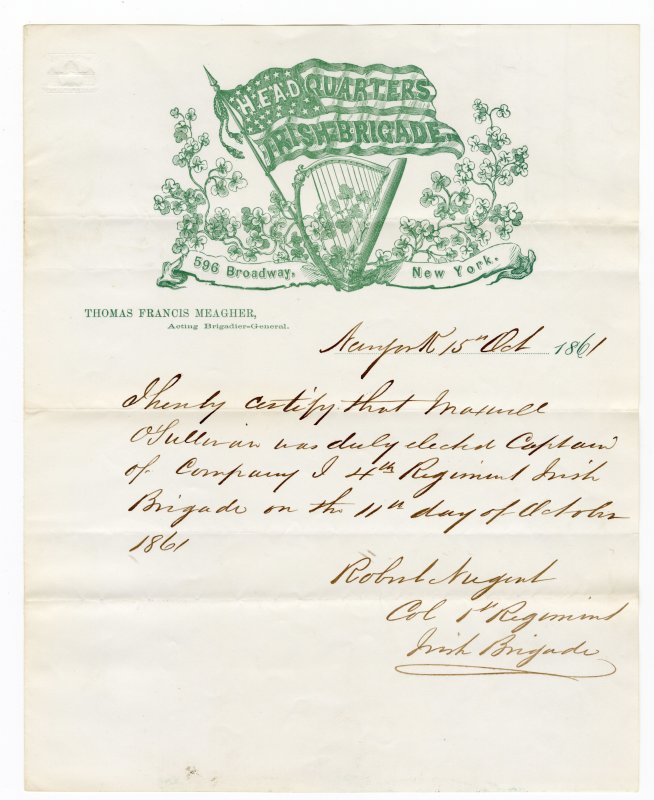 HEAD QUARTERS
IRISH BRIGADE.
596 Broadway, New York.
THOMAS FRANCIS MEAGHER,
Acting Brigadier-General.
Newyork 15th Oct 1861
I hereby certify that Maxwell
O'Sullivan was duly elected Captain
of Company I 4th Regiment Irish
Brigade on the 11th day of October
1861
Robert Nugent
Col 1st Regiment
Irish Brigade